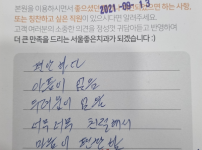 본원을 이용하시면서 좋으셨던
또는 칭찬하고 싶은 직원이 있으시다면 알려주세요.
고객 여러분의 소중한 의견을 정성껏 귀담아듣고 반영하여
더 큰 만족을 드리는 서울좋은치과가 되겠습니다 :)
2021-09-13
편안하다
아픔이 없음
두려움이 없음
너무너무 친절해서
마음이 편안함